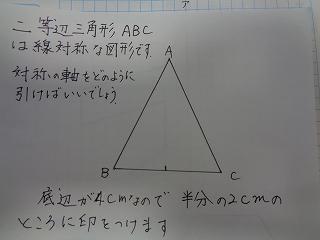 二等辺三角形ABC
は線対称な図形です.
対称の軸をどのように
引けばいいでしょう
A
B
C
底辺が4cmなので 半分の2cmの
ところに印をつけます